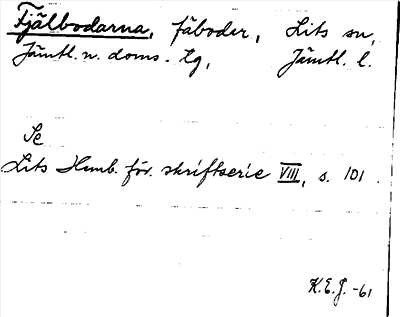 Fjälbodarna, fäboder, Lits sn,
Jämtl. n. doms. hg, Jämtl. l.
Se
Lits Hemb. för. skriftserie VIII, s. 101.
K.E.J. -61